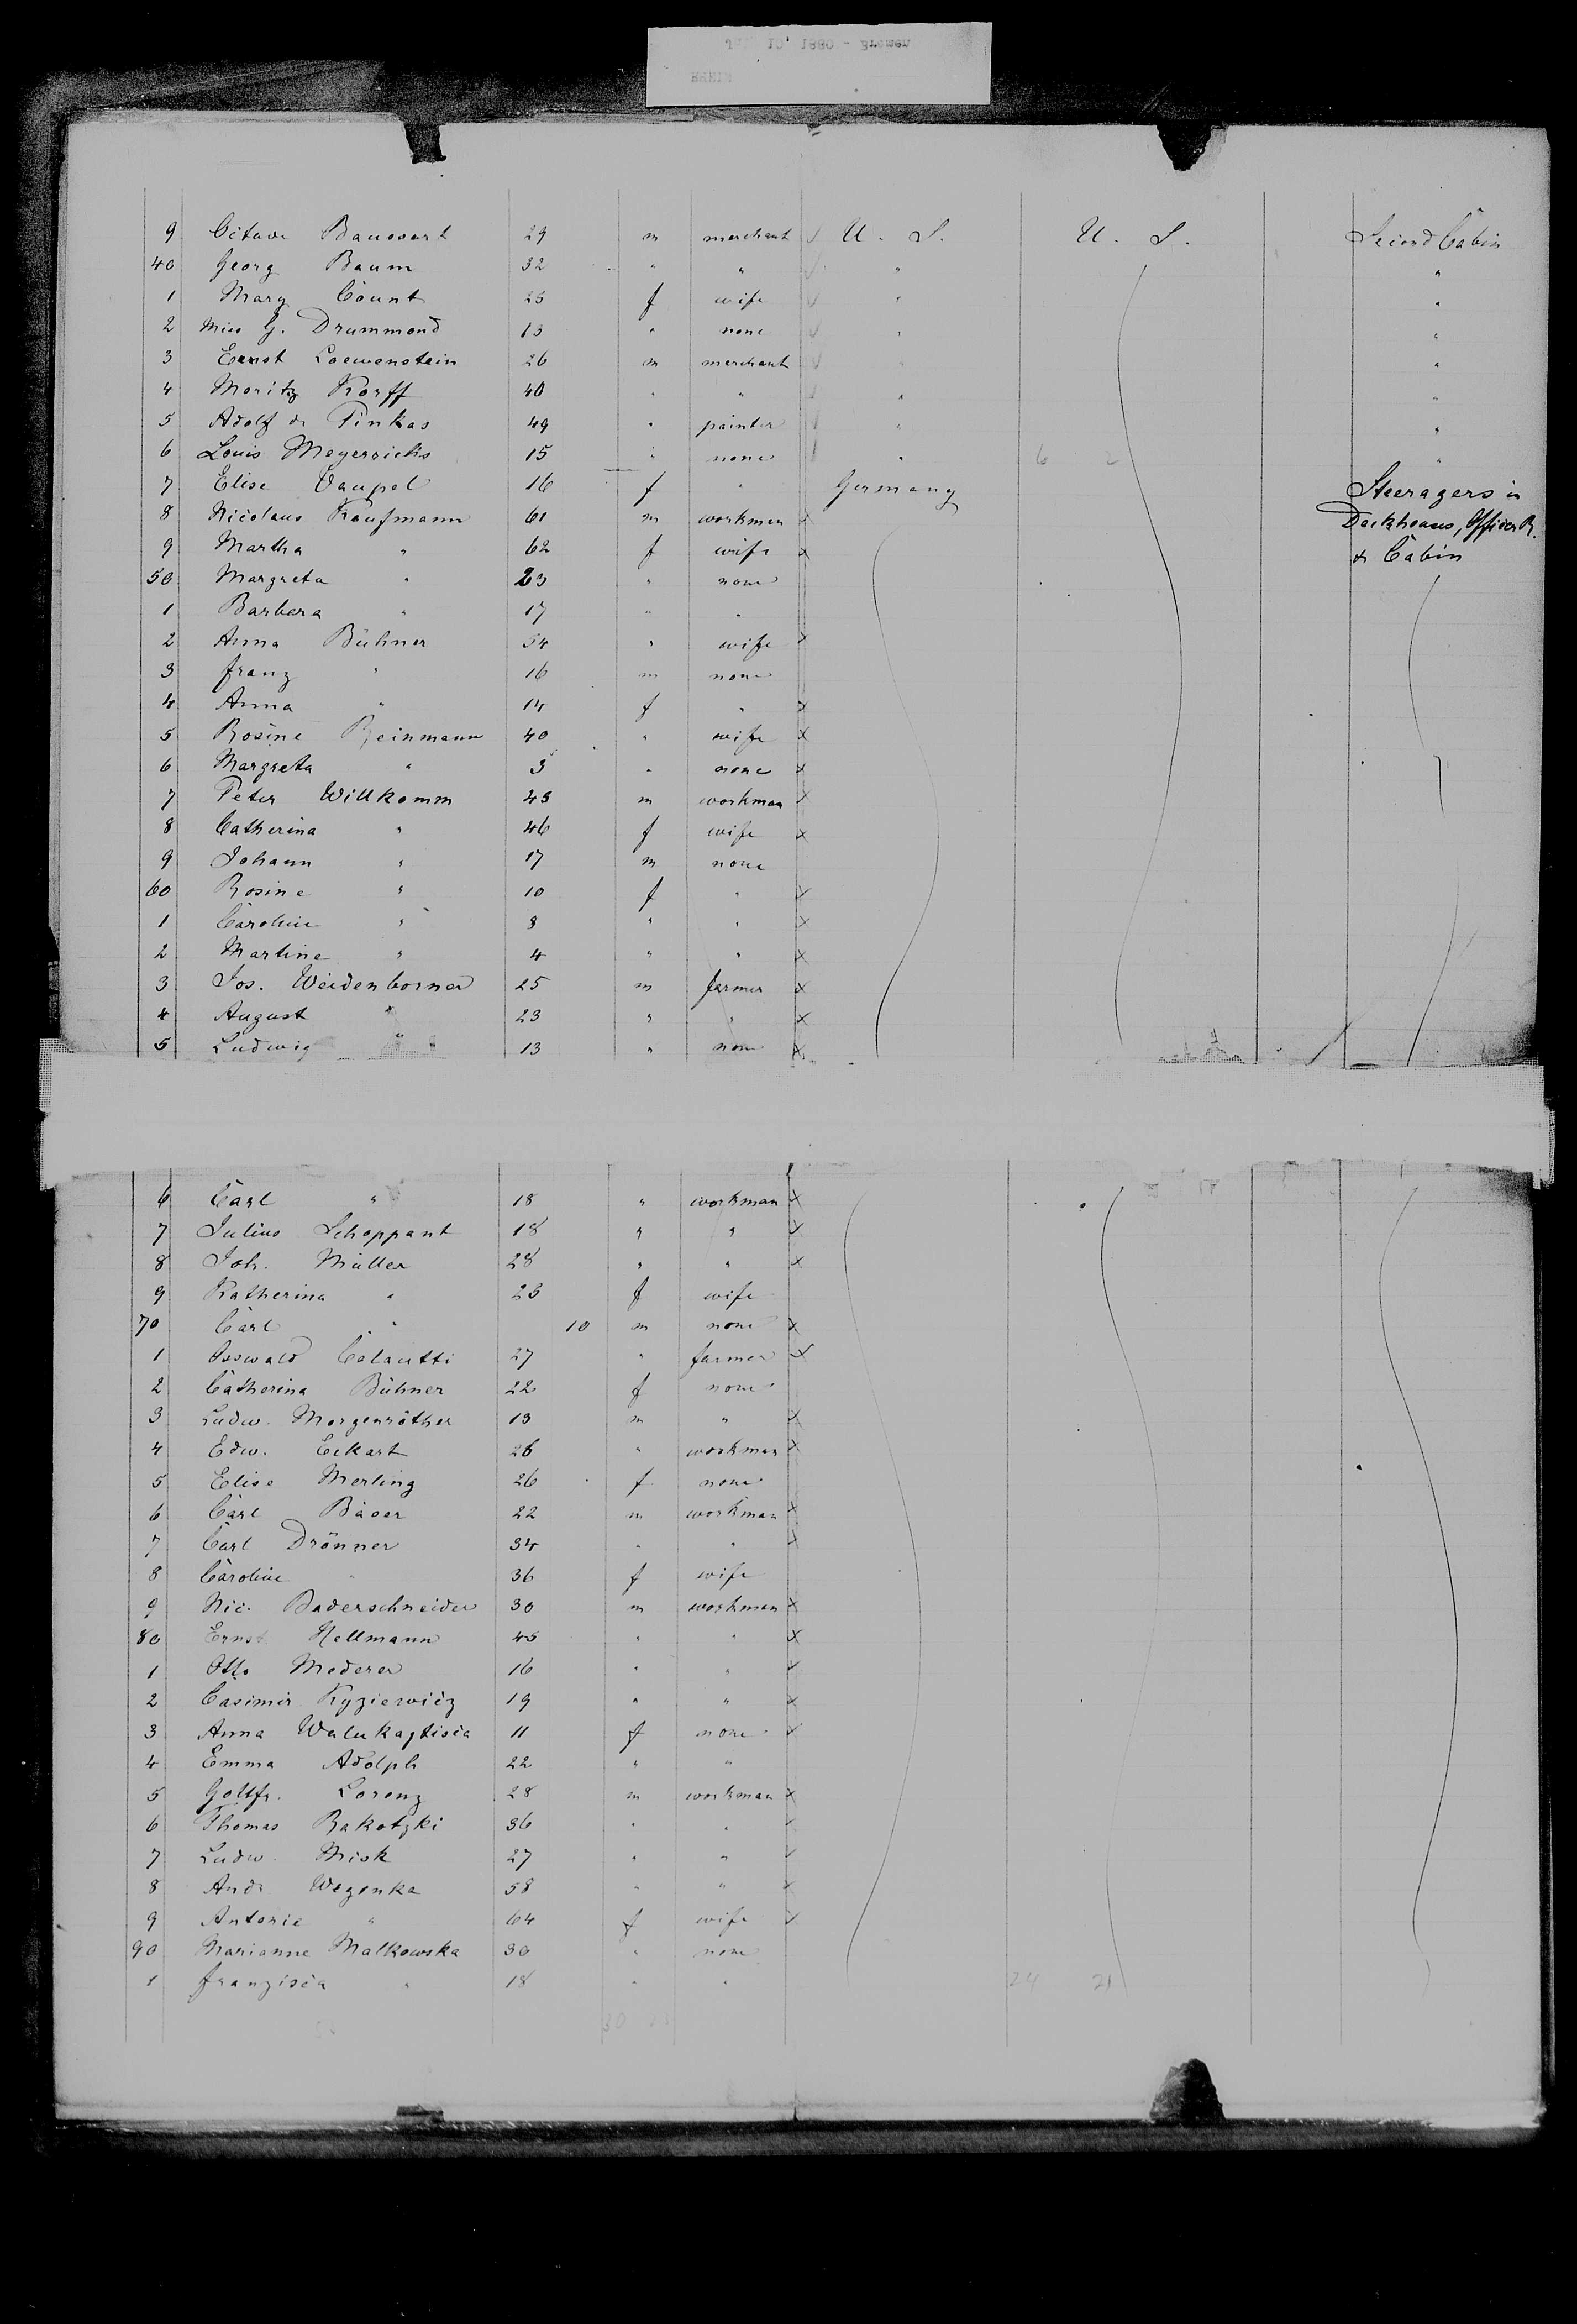 10 1890 - gremen
9 Octave Bausvart 29 m merchant U. S. U. S. Second Cabin
40 Georg Baum 32 " " " "
1 Mary Count 25 f wife " "
2 Miss G. Drummond 13 " none " "
3 Ernst Loewenstein 26 m merchant " "
4 Moritz Korff 40 " " " "
5 Adolf de Pinkas 49 " painter " "
6 Louis Meyerrichs 15 " none " 6 2 "
7 Elise Vaupel 16 f " Germany Steeragers in
8 Nicolaus Kaufmann 61 m workman x Deckhouses, Officer R.
9 Martha " 62 f wife x & Cabin
50 Margreta " 23 " none
1 Barbera " 17 " "
2 Anna Bühner 54 " wife x
3 Franz " 16 m none
4 Anna " 14 f " x
5 Rosine Reinmann 40 " wife x
6 Margreta " 3 " none x
7 Peter Willkomm 45 m workman x
8 Catherina " 46 f wife x
9 Johann " 17 m none
60 Rosine " 10 f " x
1 Caroline " 8 " " x
2 Martine " 4 " " x
3 Jos. Weidenborner 25 m farmer x
4 August " 23 " " x
5 Ludwig " 13 " none x
6 Carl " 18 " workman x
7 Julius Schoppant 18 " " x
8 Joh. Müller 28 " " x
9 Katherina " 25 f wife
70 Carl " 10 m none x
1 Osswald Colautti 27 " farmer x
2 Catherina Bühner 22 f none
3 Ludw. Morgenröther 13 m " x
4 Edw. Eckart 26 " workman x
5 Elise Merling 26 f none
6 Carl Bäser 22 m workman x
7 Carl Drönner 34 " " x
8 Caroline " 36 f wife
9 Nic. Baderschneider 30 m workman x
80 Ernst Hellmann 45 " " x
1 Otto Mederer 16 " " x
2 Casimir Kyziewicz 19 " " x
3 Anna Walukajtisia 11 f none x
4 Emma Adolph 22 " "
5 Gottfr. Lorenz 28 m workman x
6 Thomas Rakotzki 36 " " x
7 Ludw. Misk 27 " " x
8 Andr Wegenka 58 " " x
9 Antonie " 64 f wife x
90 Marianne Malkowska 30 " none
1 Franzisca " 18 " " 24 21